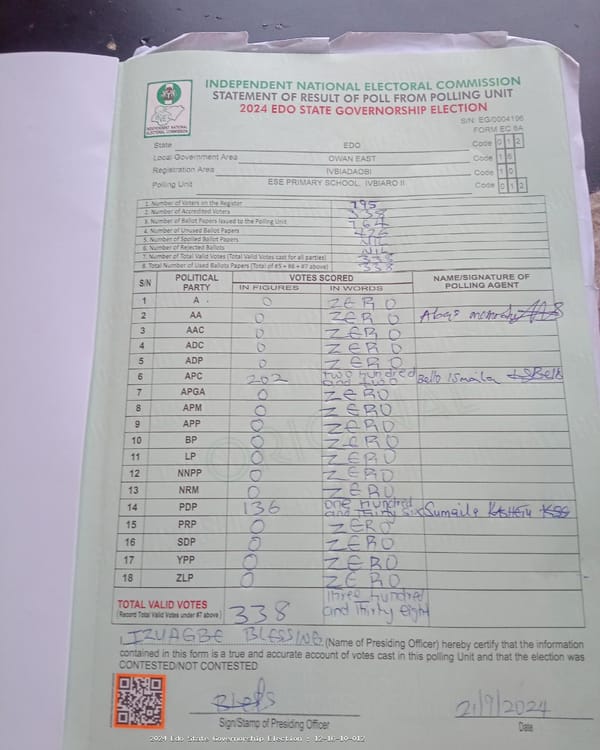 INDEPENDENT NATIONAL ELECTORAL COMMISSION
STATEMENT OF RESULT OF POLL FROM POLLING UNIT
2024 EDO STATE GOVERNORSHIP ELECTION
S/N: EG/0004196
FORM EC 8A
INDEPENDENT NATIONAL ELECTORAL COMMISSION
State EDO Code 0 1 2
Local Government Area OWAN EAST Code 1 6
Registration Area IVBIADAOBI Code 1 0
Polling Unit ESE PRIMARY SCHOOL, IVBIARO II Code 0 1 2
1. Number of Voters on the Register 795
2. Number of Accredited Voters 338
3. Number of Ballot Papers Issued to the Polling Unit 764
4. Number of Unused Ballot Papers 426
5. Number of Spoiled Ballot Papers NIL
6. Number of Rejected Ballots NIL
7. Number of Total Valid Votes (Total Valid Votes cast for all parties) 338
8. Total Number of Used Ballots Papers (Total of #5 + #6 + #7 above) 338
S/N POLITICAL PARTY VOTES SCORED NAME/SIGNATURE OF POLLING AGENT
IN FIGURES IN WORDS
1 A 0 ZERO
2 AA 0 ZERO
3 AAC 0 ZERO
4 ADC 0 ZERO
5 ADP 0 ZERO
6 APC 202 two hundred and two Bello Ismaila
7 APGA 0 ZERO
8 APM 0 ZERO
9 APP 0 ZERO
10 BP 0 ZERO
11 LP 0 ZERO
12 NNPP 0 ZERO
13 NRM 0 ZERO
14 PDP 136 one hundred and thirty six Sumaila
15 PRP 0 ZERO
16 SDP 0 ZERO
17 YPP 0 ZERO
18 ZLP 0 ZERO
TOTAL VALID VOTES 338 three hundred and thirty eight
(Record Total Valid Votes under #7 above)
I, IZUAGBE BLESSING (Name of Presiding Officer) hereby certify that the information
contained in this form is a true and accurate account of votes cast in this polling Unit and that the election was
CONTESTED/NOT CONTESTED
21/9/2024
Sign/Stamp of Presiding Officer Date
2024 Edo State Governorship Election : 12-16-10-012